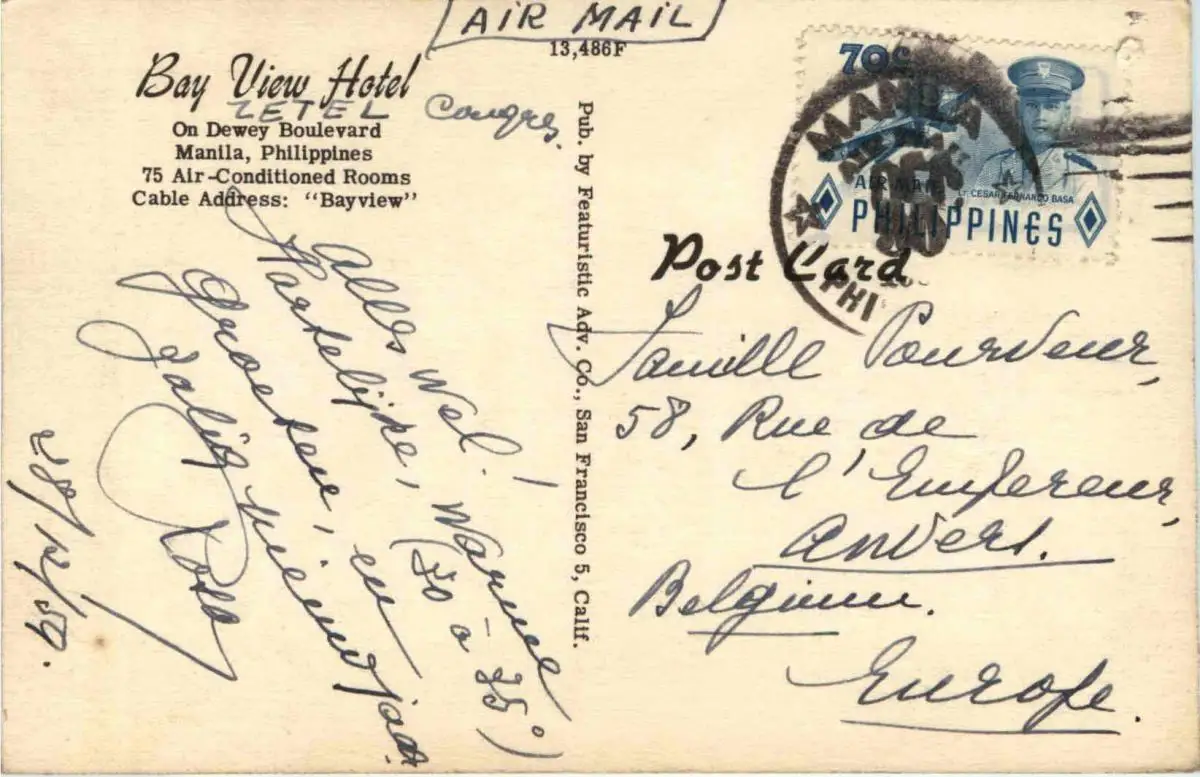 AIR MAIL
13,486F
Bay View Hotel
ZETEL Congres.
On Dewey Boulevard
Manila, Philippines
75 Air-Conditioned Rooms
Cable Address: "Bayview"
Alles wel!
Hartelijke, warme
(30 à 35°)
Groeten, en
zalig nieuwjaar
28/12/59.
Pub. by Featuristic Adv. Co., San Francisco 5, Calif.
70c
AIR MAIL
LT. CESAR FERNANDO BASA
PHILIPPINES
MANILA
DEC
PHI
Post Card
Famille Pourveur,
58, Rue de
l'Empereur,
Anvers.
Belgium.
Europe.